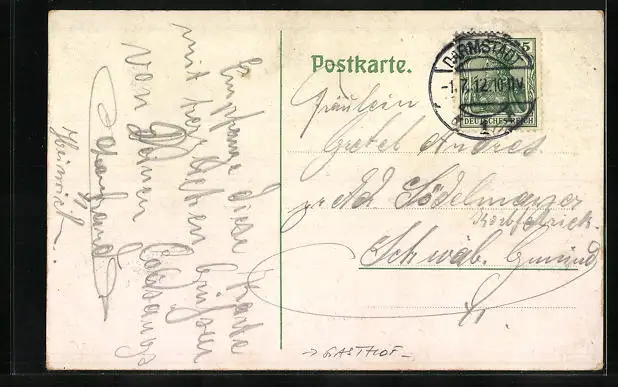 Empfange diese Karte
mit herzlichen Grüßen
von Deinem
Heinrich.
Postkarte.
DARMSTADT
-1.7.12.10-11V.
DEUTSCHES REICH
5
Fräulein
Gretel Andres
Ad. Södelmayer
Korbfabrik.
Schwäb. Gmünd
→ GASTHOF -